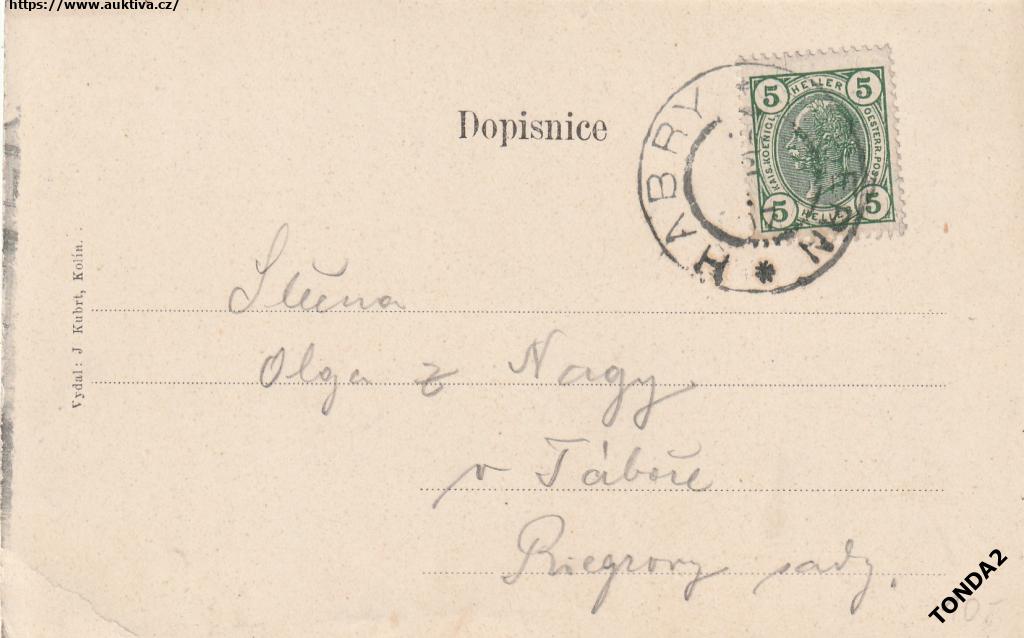 https://www.auktiva.cz/
Dopisnice
HABRY
5 HELLER 5
KAIS. KOENIGL.
OESTERR. POST
5 HELLER 5
Slečna
Olga z Nagy
v Táboře
Riegrovy sady.
Vydal: J Kubrt, Kolín.
TONDA2